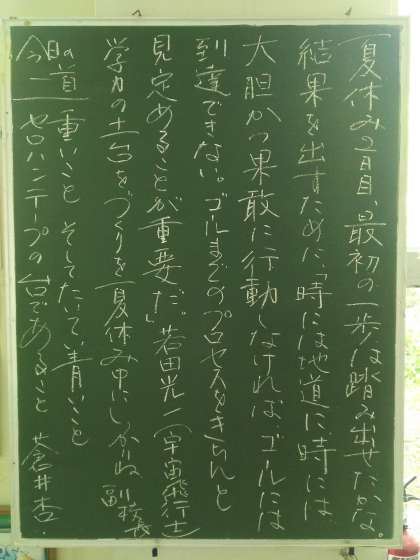 夏休み2日目、最初の一歩は踏み出せたかな。
結果を出すために、「時には地道に、時には
大胆かつ果敢に行動しなければ、ゴールには
到達できない。ゴールまでのプロセスをきちんと
見定めることが重要だ。」若田光一(宇宙飛行士)
学力の土台をづくりを夏休み中にしっかりね 副校長
今日の一首 重いこと そしてたいてい青いこと
セロハンテープの台であること 蒼井杏